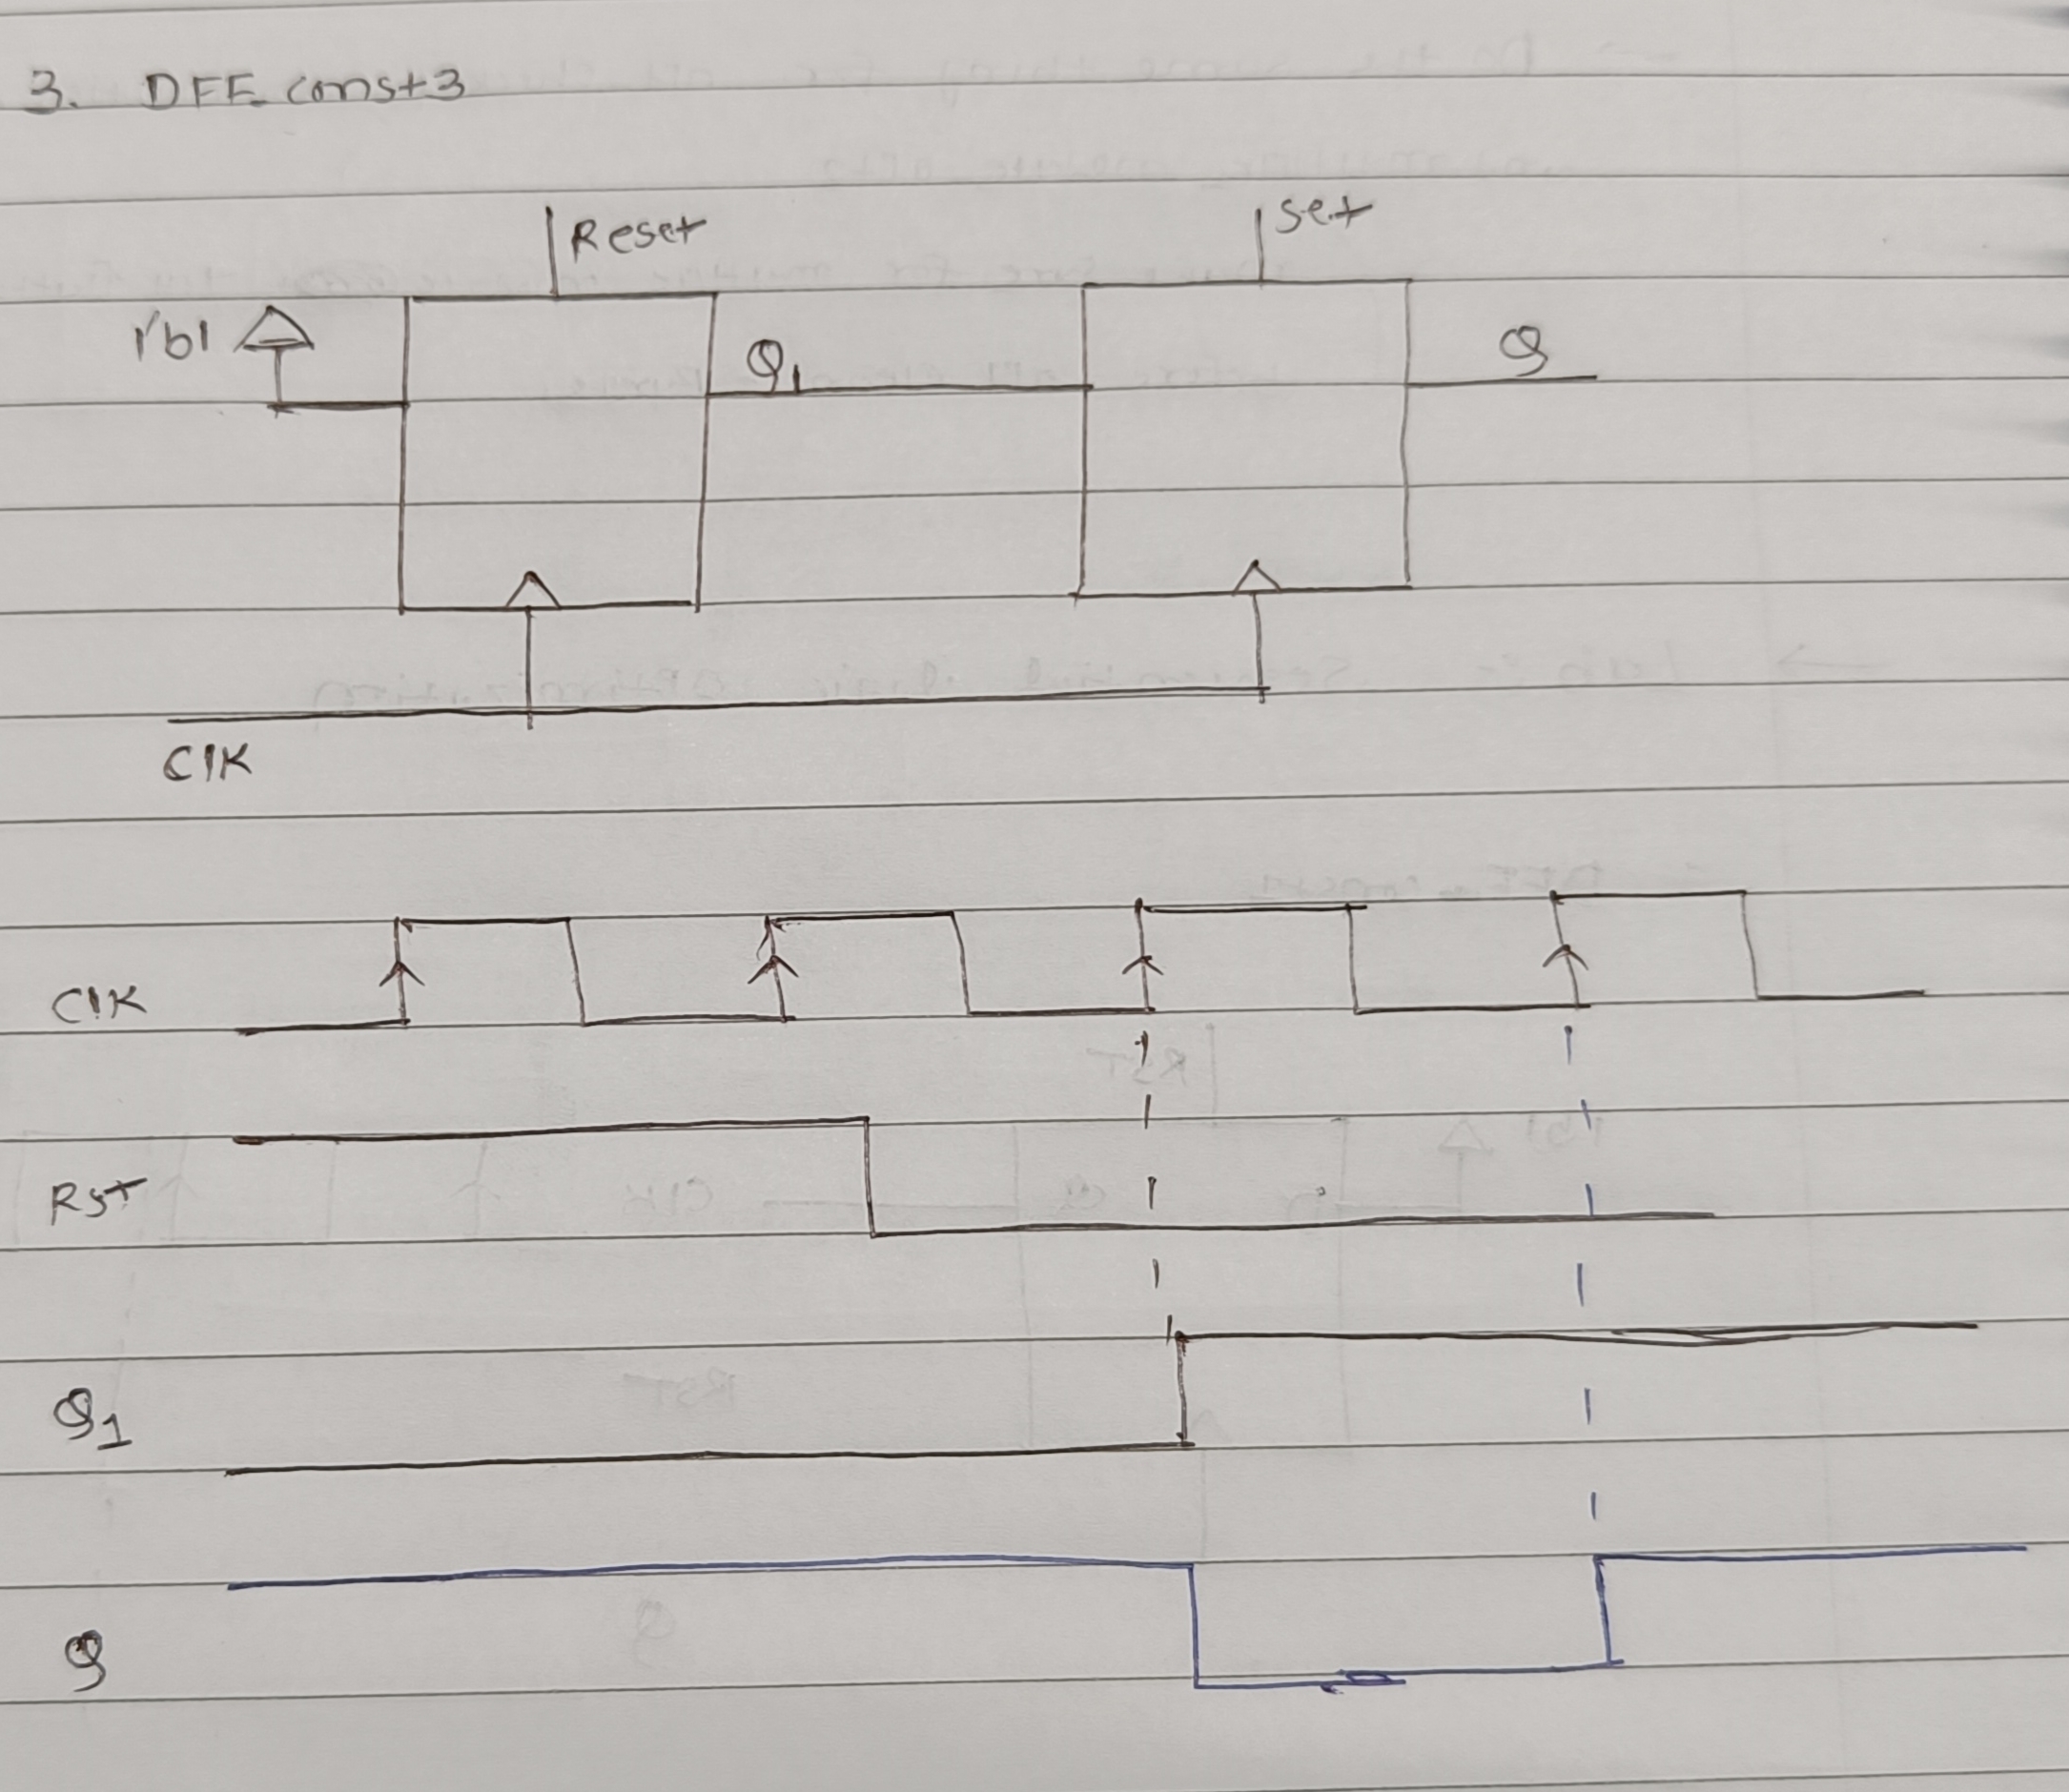 3. DFF_const3
Reset
Set
1'b1
Q1
Q
CLK
CLK
Rst
Q1
Q